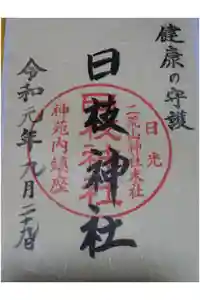 健康の守護
日光
二荒山神社末社
日枝神社
日枝神社
神苑内鎮座
令和元年九月二十九日